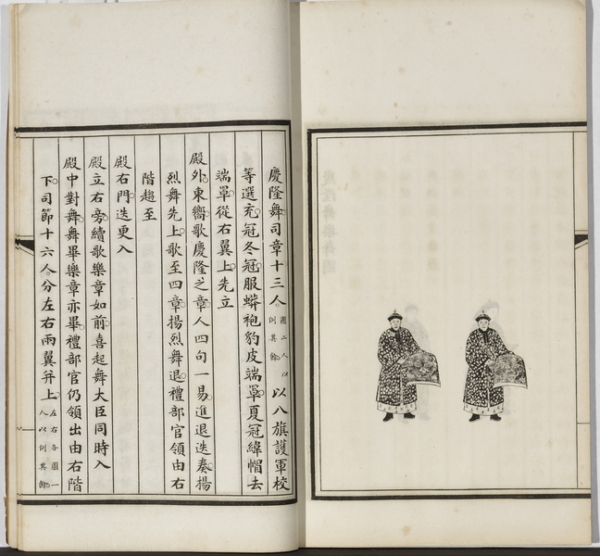 慶隆舞司章十三人圖二人以例其餘以八旗護軍校
等選充冠冬冠服蟒袍豹皮端罩夏冠緯帽去
端罩從右翼上先立
殿外東嚮歌慶隆之章人四句一易進退迭奏揚
烈舞先上歌至四章揚烈舞退禮部官領由右
階趨至
殿右門迭更入
殿立右旁續歌樂章如前喜起舞大臣同時入
殿中對舞舞畢樂章亦畢禮部官仍領出由右階
下司節十六人分左右兩翼并上左右各圖一人以例其餘